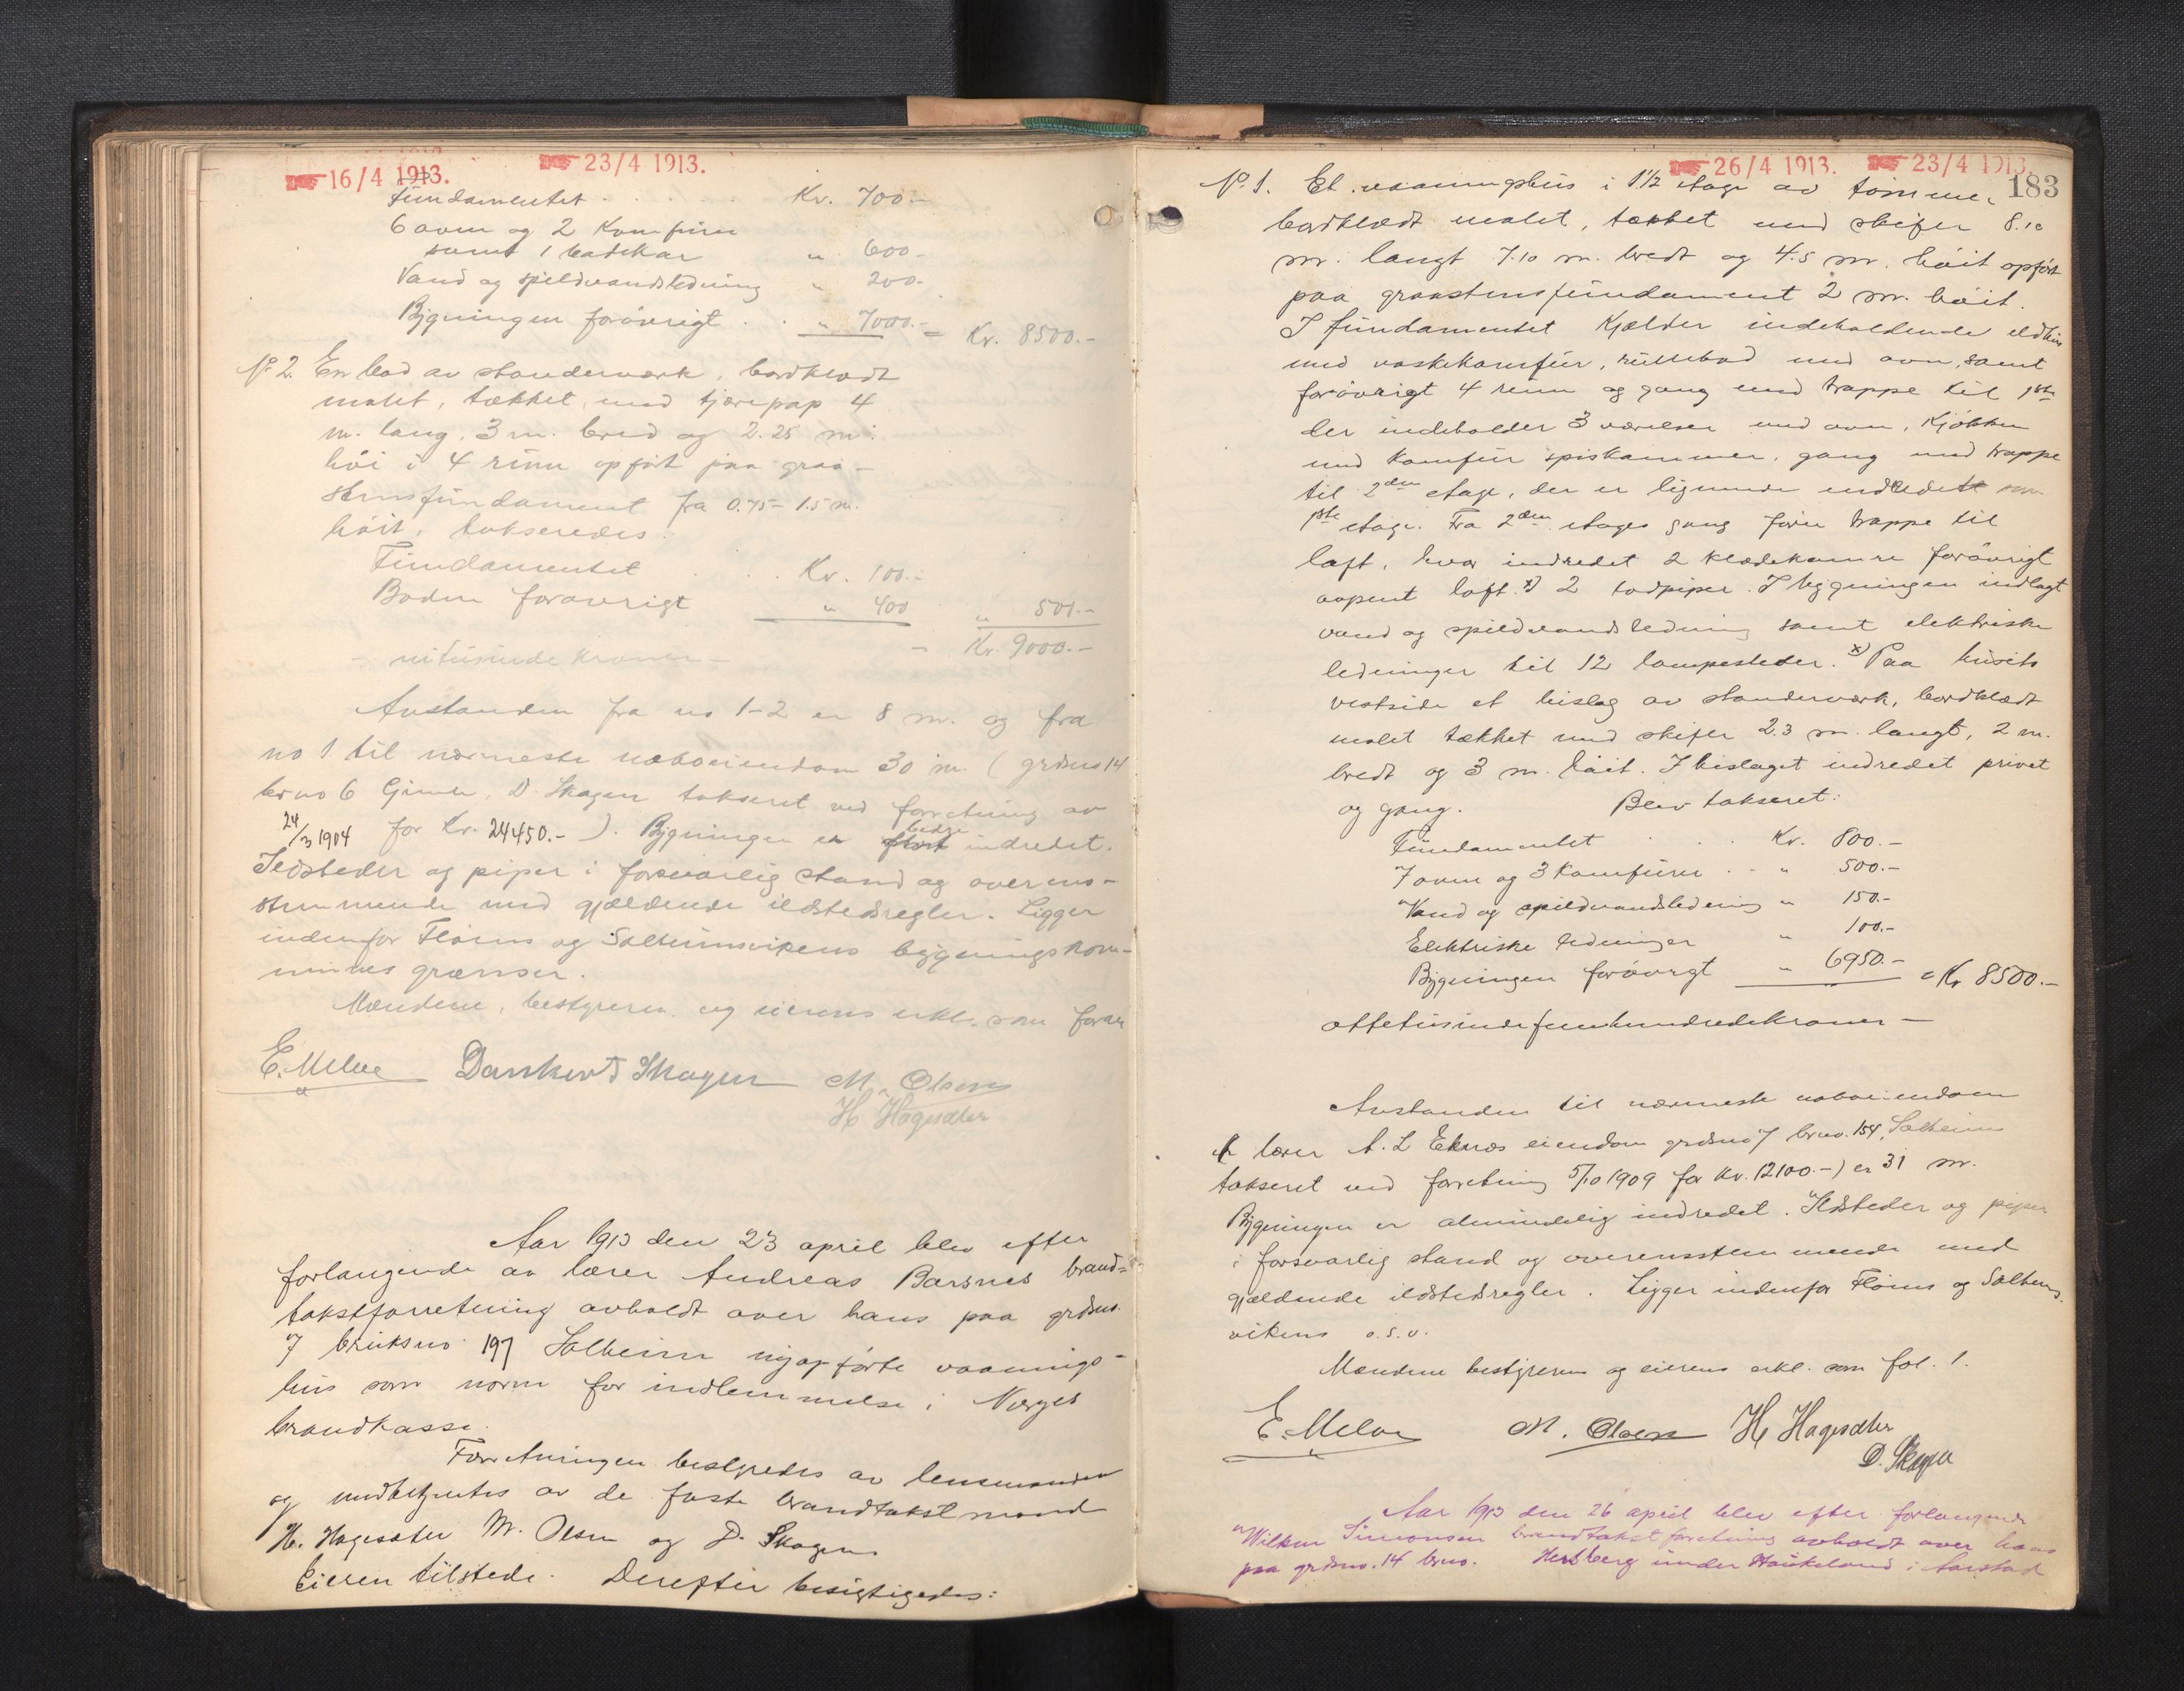 16/4 1913.
23/4 1913.
Fundamentet . . . . Kr. 700.-
6 ovne og 2 Komfürer
samt 1 badekar " 600-
Vand og spildvandsledning " 200.-
Bygningen forøvrigt . . " 7000.- = Kr. 8500.-
No 2. En bod av standerværk, bordklædt
malet, tækket med tjærepap 4
m. lang, 3 m. bred og 2.25 m.
høi i 4 rum opført paa graa-
stensfundament fra 0.75 - 1.5 m.
høit, takseredes:
Fundamentet . . . Kr. 100.-
Boden forøvrigt " 400 " 500.-
- nitusinde kroner - - Kr. 9000.-
Avstanden fra no 1-2 er 8 m. og fra
no 1 til nærmeste naboeiendom 30 m. (grdsno 14
brno 6 Gimle, D. Skagen takseret ved forretning av
24/3 1904 for Kr. 24450.-). Bygningen er bedre indredet.
Ildsteder og piper i forsvarlig stand og overens-
stemmende med gjældende ildstedsregler. Ligger
indenfor Fløens og Solheimsvikens bygningskom-
munes grænser.
Mændene, bestyreren og eierens erkl. som foran
E. Melve Dankert Skagen M. Olsen
H Hagesæter
Aar 1913 den 23 april blev efter
forlangende av lærer Andreas Barsnes brand-
takstforretning avholdt over hans paa grdsno.
7 bruksno 197 Solheim nyopførte vaanings-
hus som norm for indlemmelse i Norges
brandkasse.
Forretningen bestyredes av lensmanden
og medbetjentes av de faste brandtakstmænd
H. Hagesæter M. Olsen og D. Skagen
Eieren tilstede. Derefter besigtigedes:
26/4 1913. 23/4 1913.
183
No. 1. Et vaaningshus i 1 1/2 etage av tømmer
bordklædt malet, tækket med skifer 8.10
m. langt 7.10 m. bredt og 4.5 m. høit opført
paa graastensfundament 2 m. høit.
I fundamentet Kjælder indeholdende ildhus
med vaskekomfür, rullebod med ovn, samt
forøvrigt 4 rum og gang med trappe til 1ste
der indeholder 3 værelser med ovn, Kjøkken
med Komfür spiskammer, gang med trappe
til 2den etage, der er lignende indredet som
1ste etage. Fra 2den etages gang fører trappe til
loft, hvor indredet 2 klædekamre forøvrigt
aapent loft. x) 2 rødpiper. I bygningen indlagt
vand og spildvandsledning samt elektriske
ledninger til 12 lampesteder. x) Paa husets
vestside et bislag av standerværk, bordklædt
malet tækket med skifer 2.3 m. langt, 2 m.
bredt og 3 m. høit. I bislaget indredet privet
og gang. Blev takseret:
Fundamentet . . Kr. 800.-
7 ovne og 3 Komfürer . . " 500.-
Vand og spildvandsledning " 150.-
Elektriske ledninger " 100.-
Bygningen forøvrigt " 6950.- = Kr 8500.-
ottetusindefemhundredekroner -
Avstanden til nærmeste naboeiendom
( lærer A. L Eknæs eiendom grdsno 7 brno. 154, Solheim
takseret ved forretning 5/10 1909 for Kr. 12100.-) er 31 m.
Bygningen er almindelig indredet. Ildsteder og piper
i forsvarlig stand og overensstemmende med
gjældende ildstedsregler. Ligger indenfor Fløens og Solheims-
vikens o.s.v.
Mændene bestyreren og eierens erkl. som fol. 1.
E. Melve M. Olsen H Hagesæter
D. Skagen
Aar 1913 den 26 april blev efter forlangende
Wilken Simonsen brandtakstforretning avholdt over hans
paa grdsno. 14 brno. Hersberg under Haukeland i Aarstad